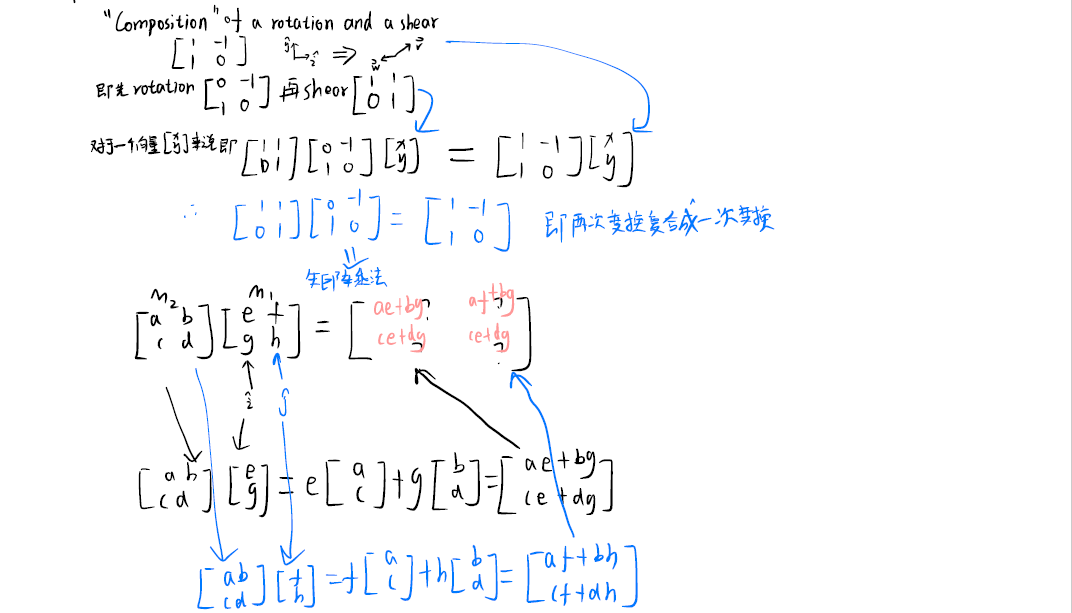 "Composition" of a rotation and a shear
[1 -1; 1 0] ĵ î ⇒ w⃗ v⃗
即先rotation [0 -1; 1 0] 再shear [1 1; 0 1]
对于一个向量[x; y]来说即 [1 1; 0 1][0 -1; 1 0][x; y] = [1 -1; 1 0][x; y]
∴ [1 1; 0 1][0 -1; 1 0] = [1 -1; 1 0] 即两次变换复合成一次变换
矩阵乘法
M2 M1
[a b; c d][e f; g h] = [ae+bg? af+bg?; ce+dg? ce+dg?]
î ĵ
[a b; c d][e; g] = e[a; c]+g[b; d] = [ae+bg; ce+dg]
[a b; c d][f; h] = f[a; c]+h[b; d] = [af+bh; cf+dh]